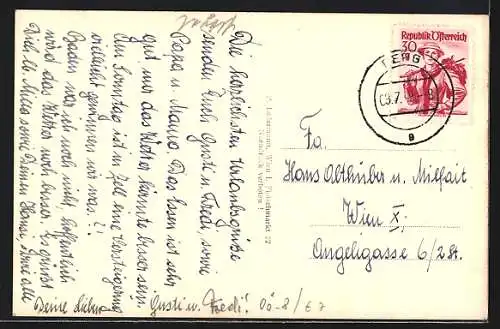 Die herzlichsten Urlaubsgrüße
senden Euch Gusti u. Fredi, sowie
Papa u. Mama. Das Essen ist sehr
gut nur das Wetter könnte besser sein.
Am Sonntag ist in Zell eine Versteigerung
vielleicht gewinnen wir was.!!
Baden war ich noch nicht, hoffentlich
wird das Wetter noch besser. Es grüßt
Viele Mal
Deine
Gusti u. Fredi!
Republik Österreich
30
Wien 1, Fleischmarkt
verboten!
Fa.
Hans Althuber u. Mitfait
Wien X.
Angeligasse 6/2 St.